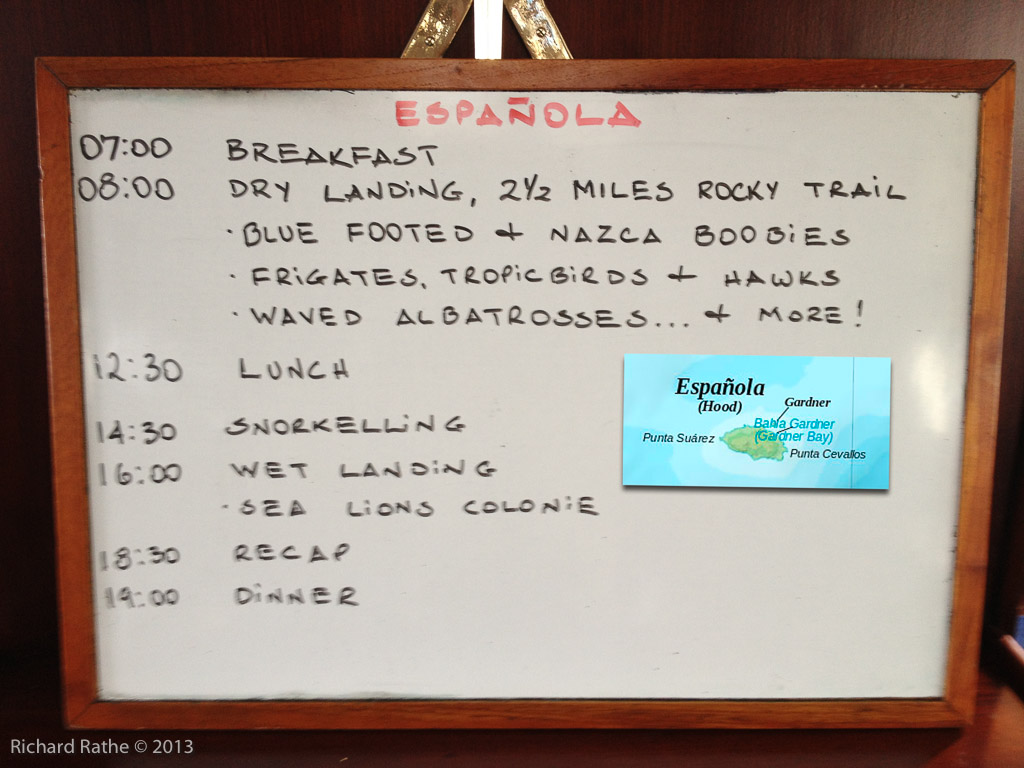 ESPAÑOLA
07:00 BREAKFAST
08:00 DRY LANDING, 2½ MILES ROCKY TRAIL
· BLUE FOOTED & NAZCA BOOBIES
· FRIGATES, TROPICBIRDS & HAWKS
· WAVED ALBATROSSES... & MORE!
12:30 LUNCH
14:30 SNORKELLING
16:00 WET LANDING
· SEA LIONS COLONIE
18:30 RECAP
19:00 DINNER
Española
(Hood)
Gardner
Bahía Gardner
(Gardner Bay)
Punta Suárez
Punta Cevallos
Richard Rathe © 2013